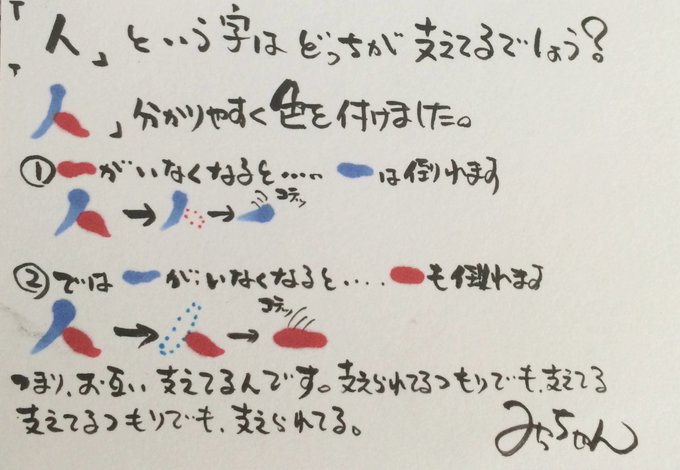 「人」という字はどっちが支えてるでしょう?
「人」分かりやすく色を付けました。
①がいなくなると・・・・・は倒れます
コテッ
②ではがいなくなると・・・・も倒れます
コテッ
つまり、お互い支えてるんです。支えられてるつもりでも、支えてる
支えてるつもりでも、支えられてる。
みちゃん